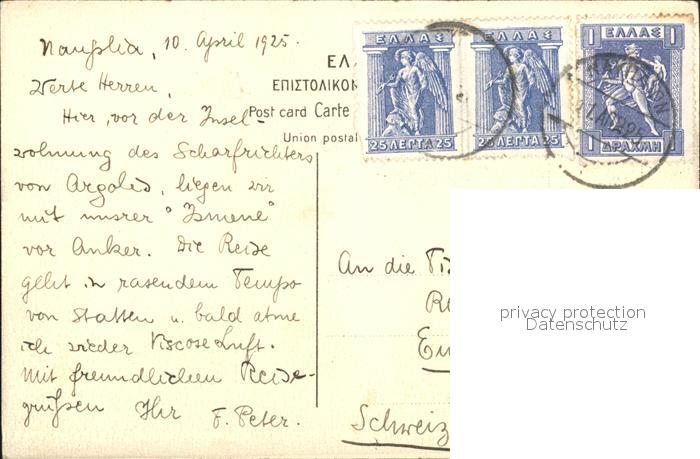 Nauplia, 10. April 1925.
Werte Herren,
Hier, vor der Insel-
wohnung des Scharfrichters
von Argolis, liegen wir
mit unsrer "Ismene"
vor Anker. Die Reise
geht in rasendem Tempo
von Statten u. bald atme
ich wieder Viscose Luft.
Mit freundlichen Reise-
grüssen Ihr F. Peter.
ΕΛ
ΕΠΙΣΤΟΛΙΚΟΝ
Post card Carte
Union postal
ΕΛΛΑΣ
25 ΛΕΠΤΑ 25
ΕΛΛΑΣ
25 ΛΕΠΤΑ 25
1 ΕΛΛΑΣ 1
1 ΔΡΑΧΜΗ 1
An die
Schweiz
privacy protection
Datenschutz